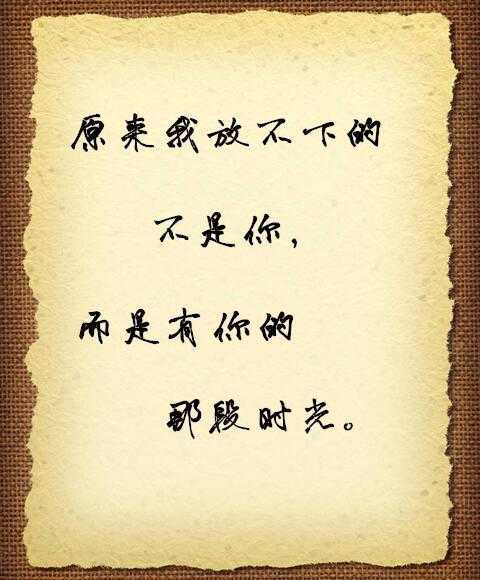 原来我放不下的
不是你，
而是有你的
那段时光。